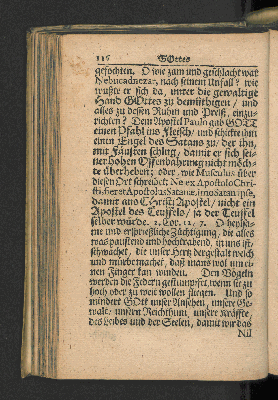 116 GOttes
gefochten. O wie zam und geschlacht war
Nebucadnezar, nach seinem Unfall? wie
wuste er sich da, unter die gewaltige
Hand GOttes zu demüthigen / und
alles zu dessen Ruhm und Preiß, einzu-
richten? Dem Apostel Paulo gab GOTT
einen Pfahl ins Fleisch/ und schickte ihm
einen Engel des Satans zu/ der ihn,
mit Fäusten schlug / damit er sich sei-
ner hohen Offenbahrung nicht möch-
te überheben; oder, wie Musculus über
diesen Ort schreibet: Ne ex Apostolo Chri-
sti, fieret Apostolus Satanæ, imo Satan ipse,
damit aus Christi Apostel / nicht ein
Apostel des Teuffels / ja der Teuffel
selber würde. 2. Cor. 12, 7. O heylsa-
me und ersprießliche Züchtigung, die alles
was paustend und hochtrabend, in uns ist,
schwächet, die unser Hertz dergestalt weich
und mürbe machet, daß mans wol um ei-
nen Finger kan winden. Den Vögeln
werden die Federn gestümpffet, wenn sie zu
hoch oder zu weit wollen fliegen. Und so
mindert GOtt unser Ansehen, unsere Ge-
walt, unsern Reichthum, unsere Kräffte,
des Leibes und der Seelen, damit wir das
Nil